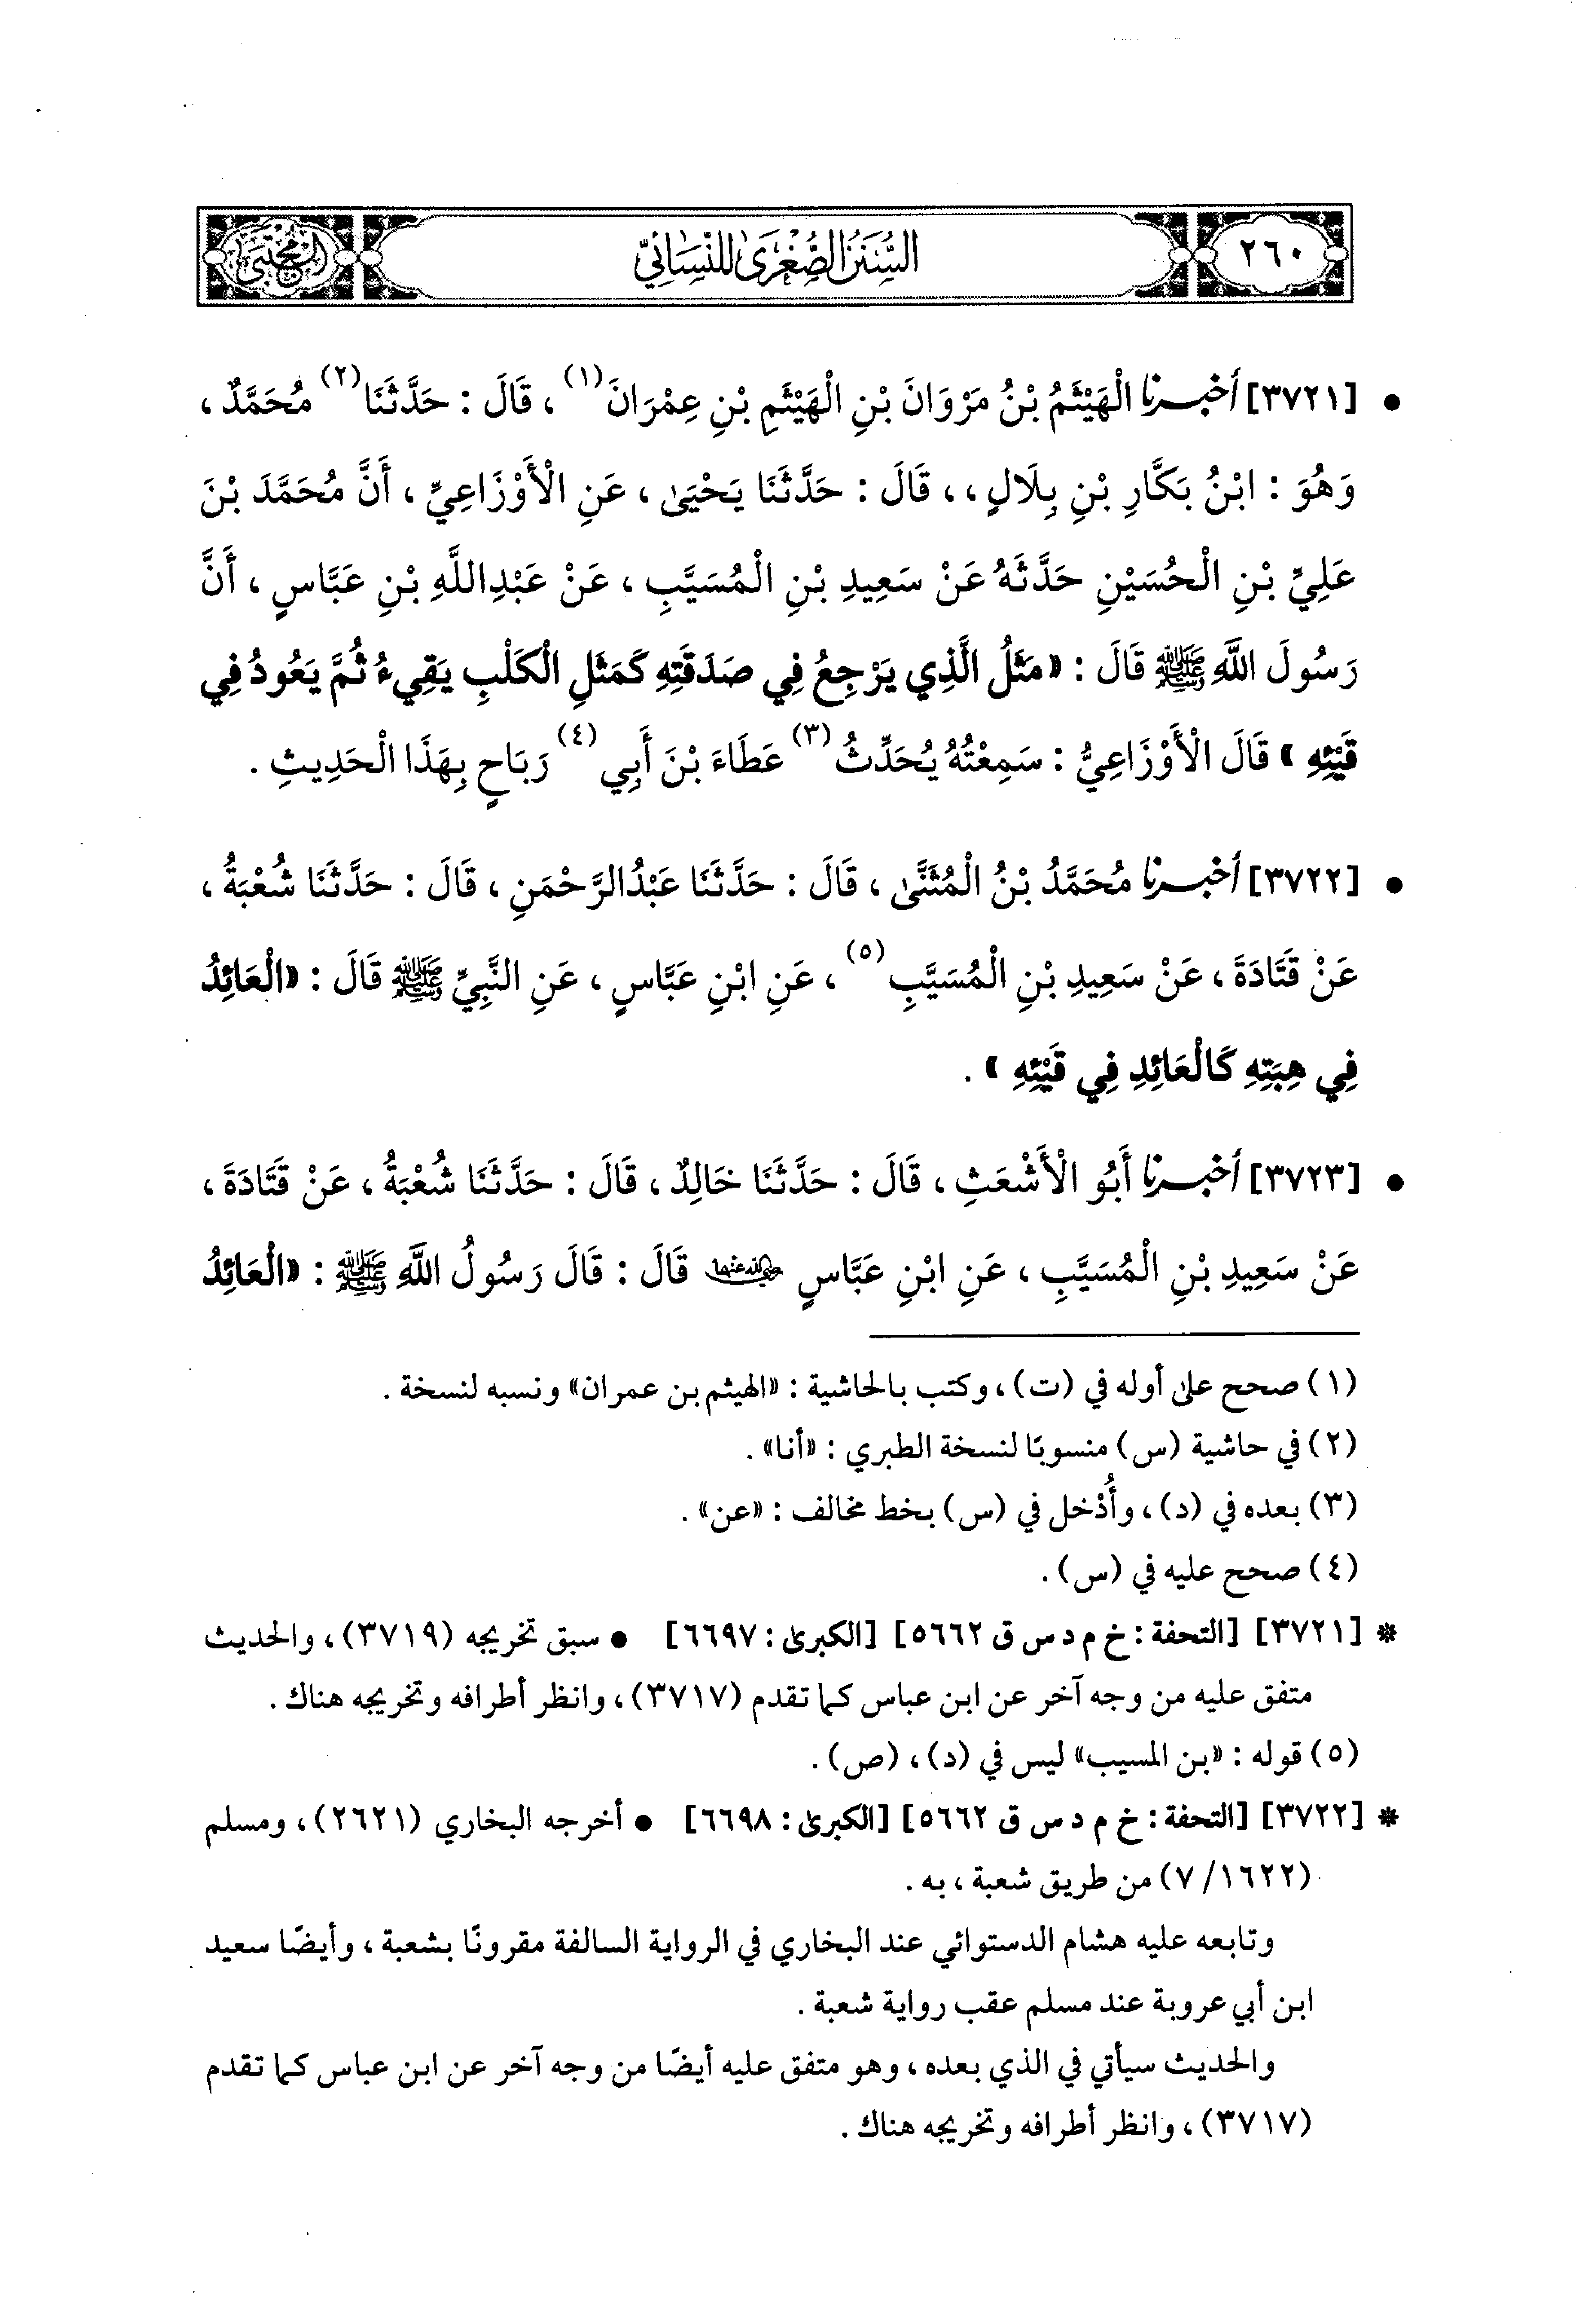 ٢٦٠
السُّنَنُ الصُّغْرَىٰ لِلنَّسَائِيِّ
المجتبى
• [٣٧٢١] أَخْبَرَنَا الْهَيْثَمُ بْنُ مَرْوَانَ بْنِ الْهَيْثَمِ بْنِ عِمْرَانَ(١) ، قَالَ : حَدَّثَنَا(٢) مُحَمَّدٌ ،
وَهُوَ : ابْنُ بَكَّارِ بْنِ بِلَالٍ ، ، قَالَ : حَدَّثَنَا يَحْيَىٰ ، عَنِ الْأَوْزَاعِيِّ ، أَنَّ مُحَمَّدَ بْنَ
عَلِيِّ بْنِ الْحُسَيْنِ حَدَّثَهُ عَنْ سَعِيدِ بْنِ الْمُسَيَّبِ ، عَنْ عَبْدِاللَّهِ بْنِ عَبَّاسٍ ، أَنَّ
رَسُولَ اللَّهِ ﷺ قَالَ : «مَثَلُ الَّذِي يَرْجِعُ فِي صَدَقَتِهِ كَمَثَلِ الْكَلْبِ يَقِيءُ ثُمَّ يَعُودُ فِي
قَيْئِهِ» قَالَ الْأَوْزَاعِيُّ : سَمِعْتُهُ يُحَدِّثُ(٣) عَطَاءَ بْنَ أَبِي(٤) رَبَاحٍ بِهَذَا الْحَدِيثِ .
• [٣٧٢٢] أَخْبَرَنَا مُحَمَّدُ بْنُ الْمُثَنَّىٰ ، قَالَ : حَدَّثَنَا عَبْدُالرَّحْمَنِ ، قَالَ : حَدَّثَنَا شُعْبَةُ ،
عَنْ قَتَادَةَ ، عَنْ سَعِيدِ بْنِ الْمُسَيَّبِ(٥) ، عَنِ ابْنِ عَبَّاسٍ ، عَنِ النَّبِيِّ ﷺ قَالَ : «الْعَائِدُ
فِي هِبَتِهِ كَالْعَائِدِ فِي قَيْئِهِ» .
• [٣٧٢٣] أَخْبَرَنَا أَبُو الْأَشْعَثِ ، قَالَ : حَدَّثَنَا خَالِدٌ ، قَالَ : حَدَّثَنَا شُعْبَةُ ، عَنْ قَتَادَةَ ،
عَنْ سَعِيدِ بْنِ الْمُسَيَّبِ ، عَنِ ابْنِ عَبَّاسٍ رضي الله عنهما قَالَ : قَالَ رَسُولُ اللَّهِ ﷺ : «الْعَائِدُ
(١) صحح على أوله في (ت) ، وكتب بالحاشية : «الهيثم بن عمران» ونسبه لنسخة .
(٢) في حاشية (س) منسوبًا لنسخة الطبري : «أنا» .
(٣) بعده في (د) ، وأُدْخل في (س) بخط مخالف : «عن» .
(٤) صحح عليه في (س) .
* [٣٧٢١] [التحفة : خ م د س ق ٥٦٦٢] [الكبرىٰ : ٦٦٩٧] • سبق تخريجه (٣٧١٩) ، والحديث
متفق عليه من وجه آخر عن ابن عباس كما تقدم (٣٧١٧) ، وانظر أطرافه وتخريجه هناك .
(٥) قوله : «بن المسيب» ليس في (د) ، (ص) .
* [٣٧٢٢] [التحفة : خ م د س ق ٥٦٦٢] [الكبرىٰ : ٦٦٩٨] • أخرجه البخاري (٢٦٢١) ، ومسلم
(٧/١٦٢٢) من طريق شعبة ، به .
وتابعه عليه هشام الدستوائي عند البخاري في الرواية السالفة مقرونًا بشعبة ، وأيضًا سعيد
ابن أبي عروبة عند مسلم عقب رواية شعبة .
والحديث سيأتي في الذي بعده ، وهو متفق عليه أيضًا من وجه آخر عن ابن عباس كما تقدم
(٣٧١٧) ، وانظر أطرافه وتخريجه هناك .